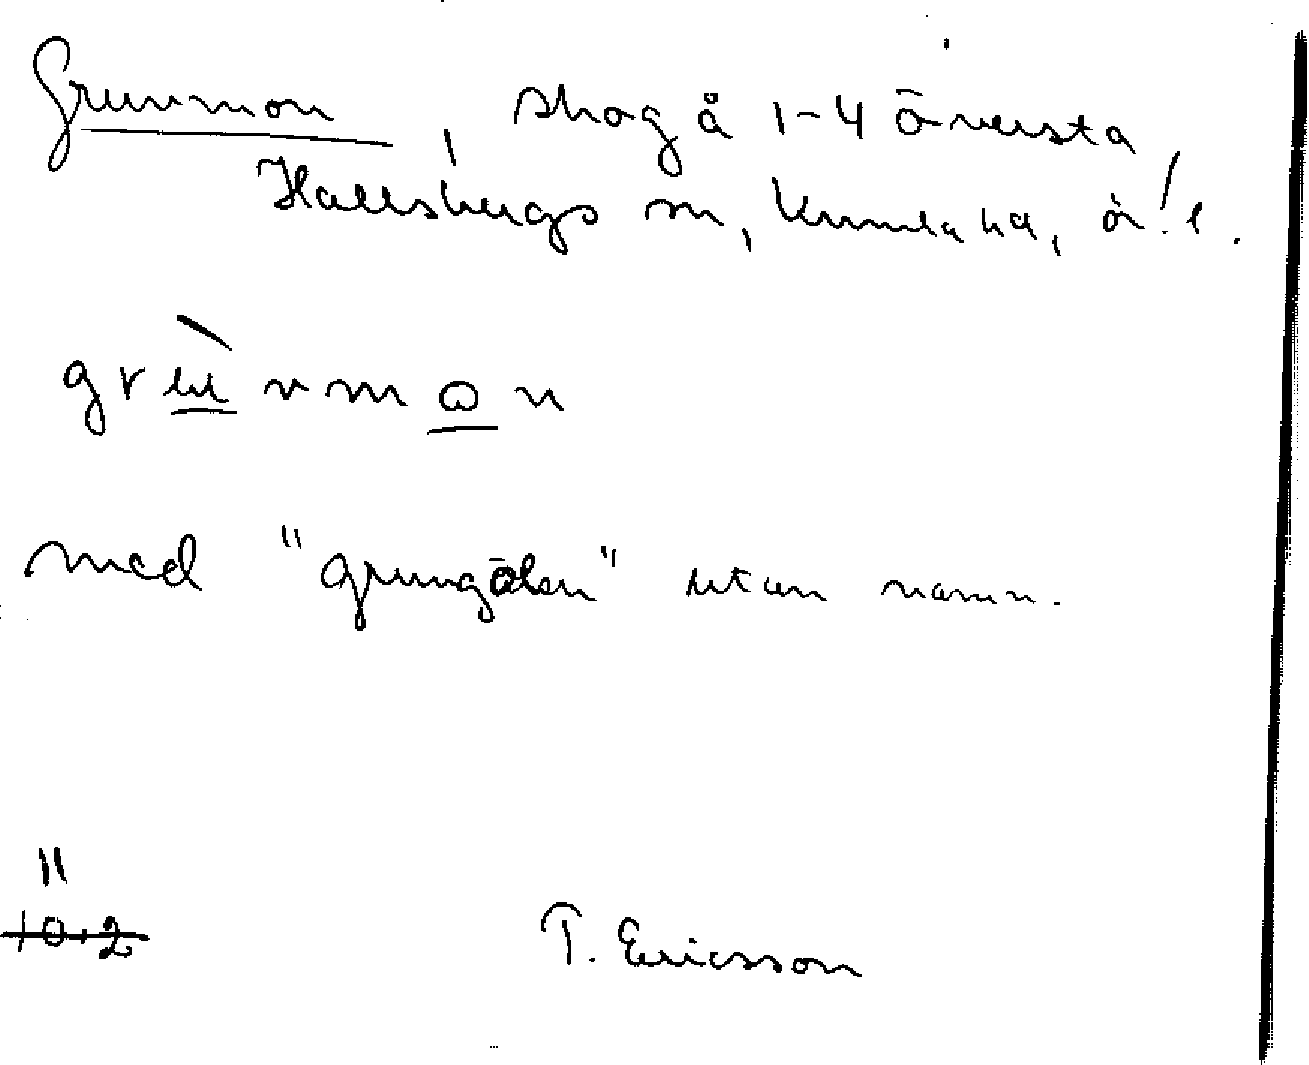 Grunmon, skog å 1-4 Öwersta
Hallsbergs sn, Kumla hd, ör! l.
grùnmon
med "grungölen" utan namn.
11
10.2
T. Ericsson